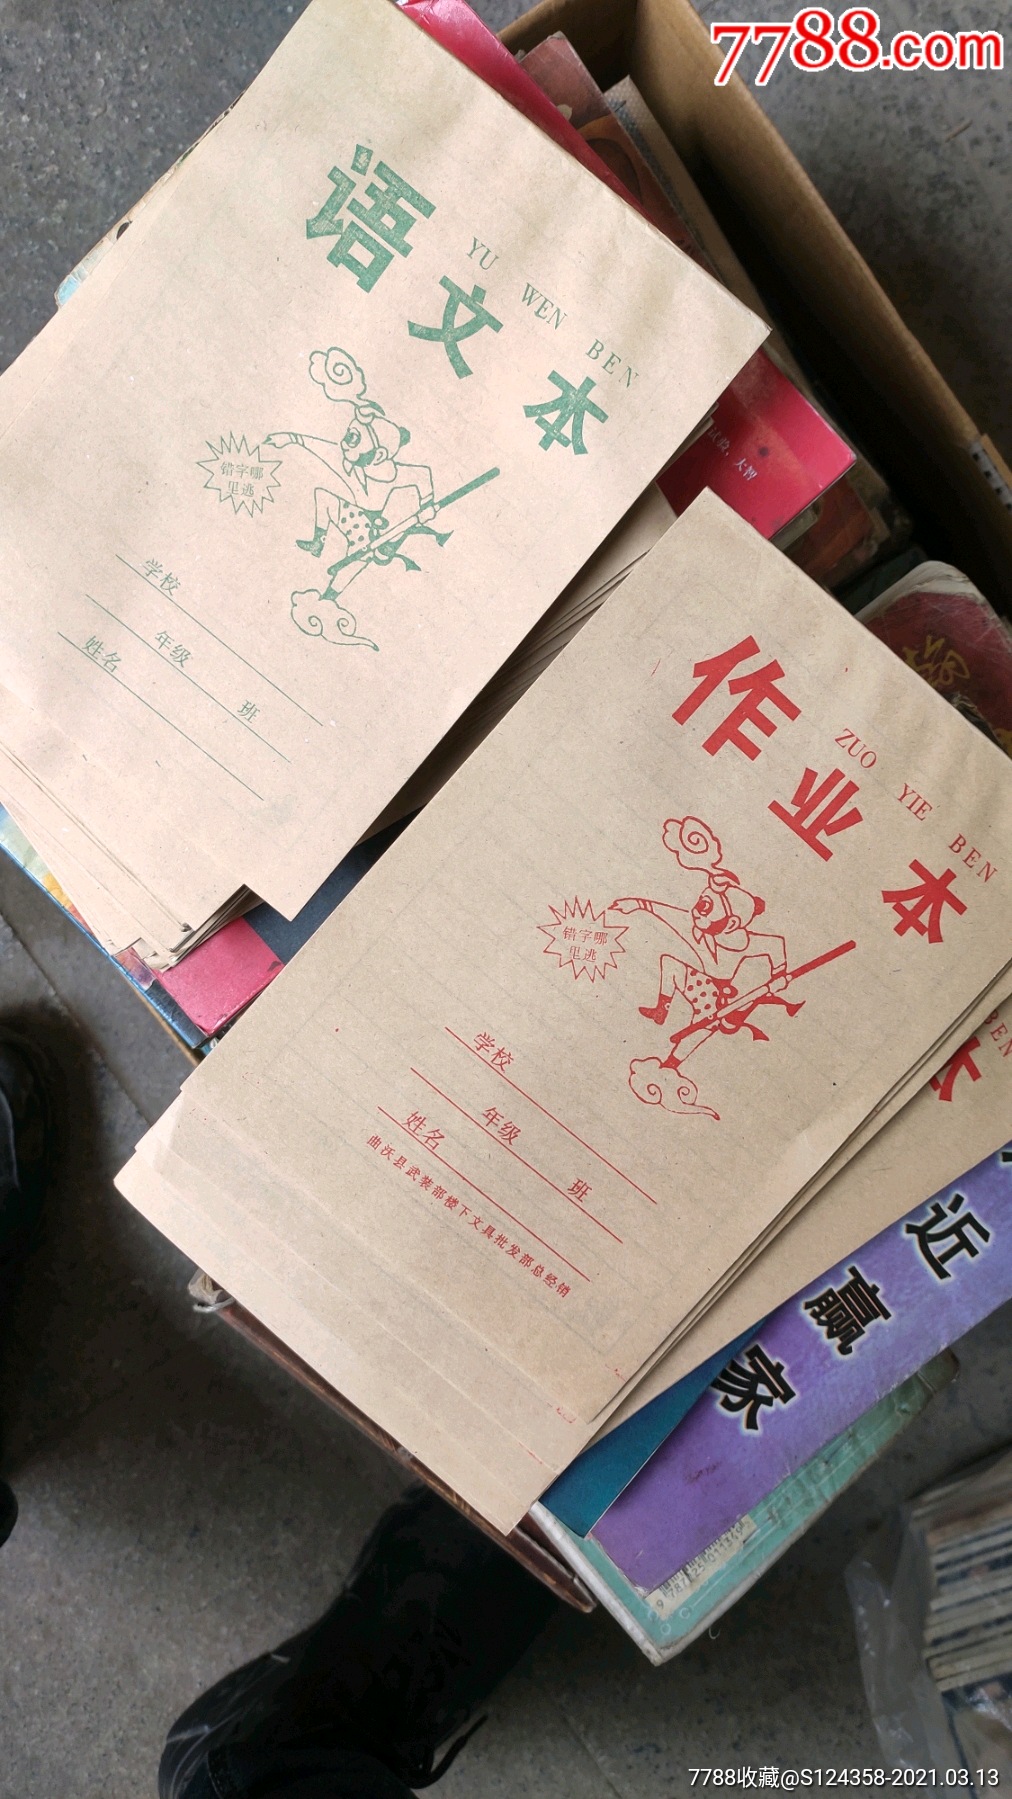 7788.com
语文本
YU WEN BEN
错字哪
里逃
学校
年级 班
姓名
大智
作业本
ZUO YIE BEN
错字哪
里逃
学校
年级 班
姓名
曲沃县武装部楼下文具批发部总经销
BEN
本
近
赢
家
7788收藏@S124358-2021.03.13